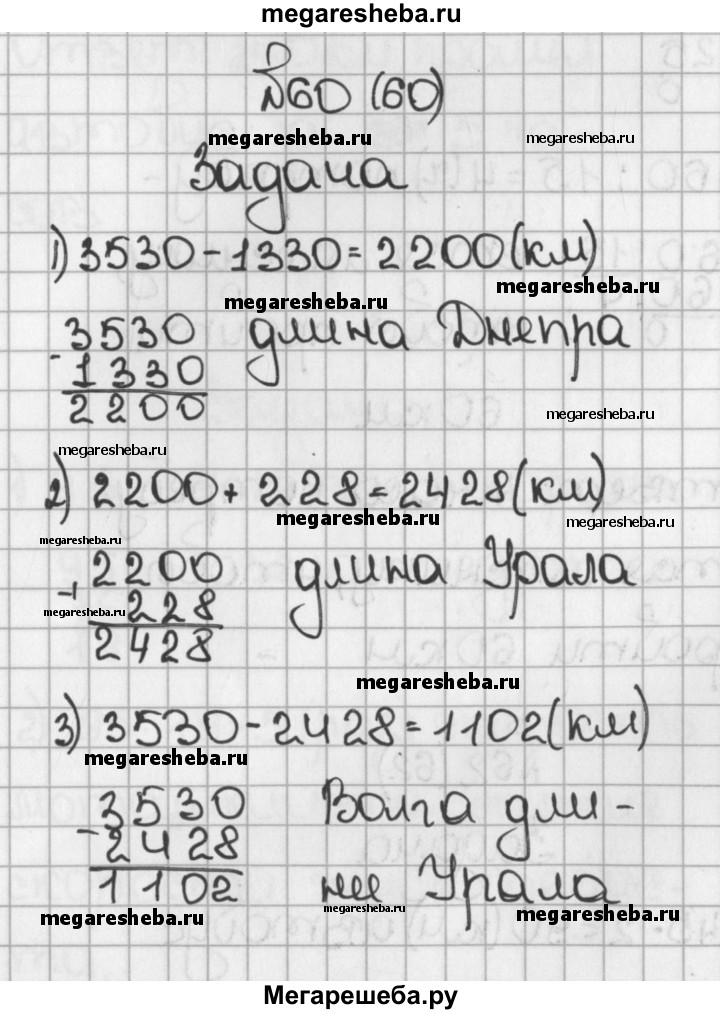 megaresheba.ru
№60 (60)
megaresheba.ru megaresheba.ru
Задача
1) 3530 - 1330 = 2200 (км)
megaresheba.ru
megaresheba.ru
3530 длина Днепра
- 1330
2200
megaresheba.ru
megaresheba.ru
2) 2200 + 228 = 2428 (км)
megaresheba.ru
megaresheba.ru
megaresheba.ru
2200 длина Урала
+ 228
megaresheba.ru
2428
megaresheba.ru
3) 3530 - 2428 = 1102 (км)
megaresheba.ru megaresheba.ru
3530 Волга дли -
- 2428
1102 ни Урала
megaresheba.ru megaresheba.ru megaresheba.ru
Мегарешеба.ру